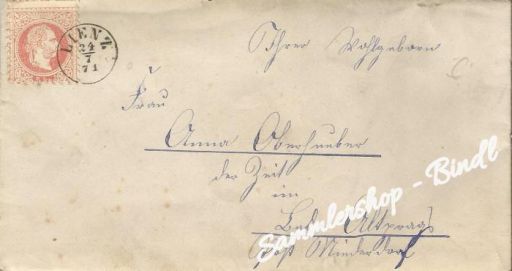 LIENZ
24
7
71
Ihrer Wohlgeborn
Frau
Anna Oberhueber
der Zeit
im
Bad Altprags
Post Niederdorf
Sammlershop - Bindl